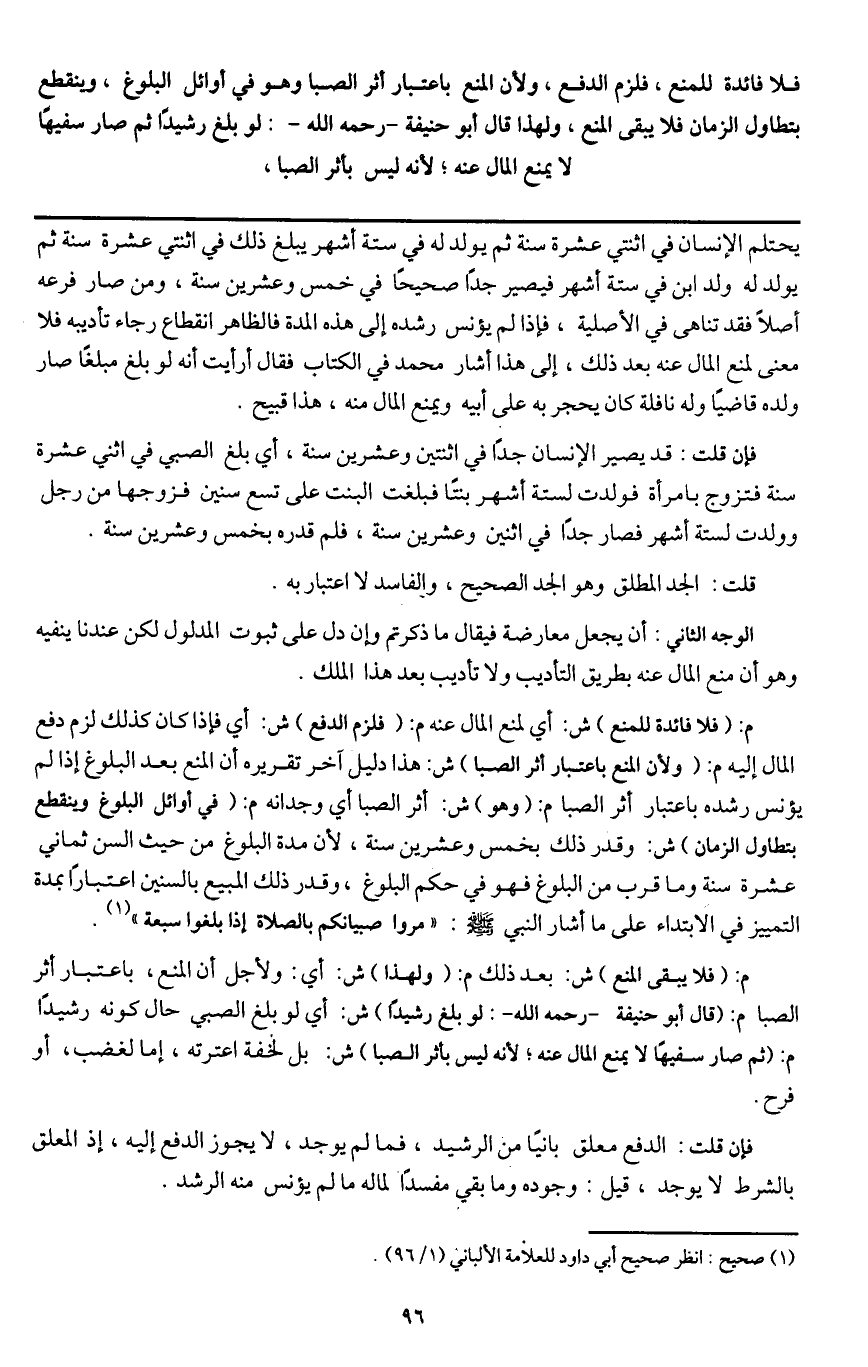 فلا فائدة للمنع ، فلزم الدفع ، ولأن المنع باعتبار أثر الصبا وهو في أوائل البلوغ ، وينقطع
بتطاول الزمان فلا يبقى المنع ، ولهذا قال أبو حنيفة -رحمه الله - : لو بلغ رشيدًا ثم صار سفيهًا
لا يمنع المال عنه ؛ لأنه ليس بأثر الصبا ،
يحتلم الإنسان في اثنتي عشرة سنة ثم يولد له في ستة أشهر يبلغ ذلك في اثنتي عشرة سنة ثم
يولد له ولد ابن في ستة أشهر فيصير جدًا صحيحًا في خمس وعشرين سنة ، ومن صار فرعه
أصلاً فقد تناهى في الأصلية ، فإذا لم يؤنس رشده إلى هذه المدة فالظاهر انقطاع رجاء تأديبه فلا
معنى لمنع المال عنه بعد ذلك ، إلى هذا أشار محمد في الكتاب فقال أرأيت أنه لو بلغ مبلغًا صار
ولده قاضيًا وله نافلة كان يحجر به على أبيه ويمنع المال منه ، هذا قبيح .
فإن قلت : قد يصير الإنسان جدًا في اثنتين وعشرين سنة ، أي بلغ الصبي في اثني عشرة
سنة فتزوج بامرأة فولدت لستة أشهر بنتًا فبلغت البنت على تسع سنين فزوجها من رجل
وولدت لستة أشهر فصار جدًا في اثنين وعشرين سنة ، فلم قدره بخمس وعشرين سنة .
قلت : الجد المطلق وهو الجد الصحيح ، والفاسد لا اعتبار به .
الوجه الثاني : أن يجعل معارضة فيقال ما ذكرتم وإن دل على ثبوت المدلول لكن عندنا ينفيه
وهو أن منع المال عنه بطريق التأديب ولا تأديب بعد هذا الملك .
م: ( فلا فائدة للمنع ) ش: أي لمنع المال عنه م: ( فلزم الدفع ) ش: أي فإذا كان كذلك لزم دفع
المال إليه م: ( ولأن المنع باعتبار أثر الصبا ) ش: هذا دليل آخر تقريره أن المنع بعد البلوغ إذا لم
يؤنس رشده باعتبار أثر الصبا م: ( وهو ) ش: أثر الصبا أي وجدانه م: ( في أوائل البلوغ وينقطع
بتطاول الزمان ) ش: وقدر ذلك بخمس وعشرين سنة ، لأن مدة البلوغ من حيث السن ثماني
عشرة سنة وما قرب من البلوغ فهو في حكم البلوغ ، وقدر ذلك المبيع بالسنين اعتبارًا بمدة
التمييز في الابتداء على ما أشار النبي ﷺ : « مروا صبيانكم بالصلاة إذا بلغوا سبعة »(١) .
م: ( فلا يبقى المنع ) ش: بعد ذلك م: ( ولهذا ) ش: أي: ولأجل أن المنع، باعتبار أثر
الصبا م: (قال أبو حنيفة -رحمه الله- : لو بلغ رشيدًا ) ش: أي لو بلغ الصبي حال كونه رشيدًا
م: (ثم صار سفيهًا لا يمنع المال عنه ؛ لأنه ليس بأثر الصبا ) ش: بل لخفة اعترته ، إما لغضب، أو
فرح.
فإن قلت : الدفع معلق بانيًا من الرشيد ، فما لم يوجد ، لا يجوز الدفع إليه ، إذ المعلق
بالشرط لا يوجد ، قيل : وجوده وما بقي مفسدًا لماله ما لم يؤنس منه الرشد .
(١) صحيح : انظر صحيح أبي داود للعلامة الألباني (١/ ٩٦) .
٩٦